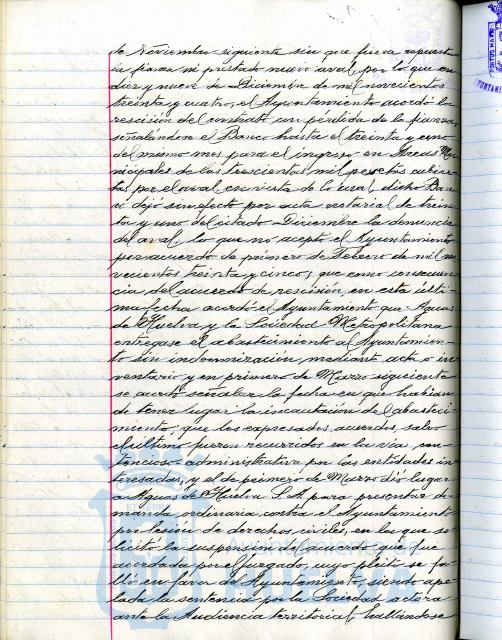 de Noviembre siguiente sin que fuera repuesta
la fianza ni prestado nuevo aval, por lo que en
diez y nueve de Diciembre de mil novecientos
treinta y cuatro, el Ayuntamiento acordó la
rescisión del contrato con pérdida de la fianza,
señalándose el Banco hasta el treinta y uno
del mismo mes para el ingreso en Arcas Mu-
nicipales de las trescientas mil pesetas cubier-
tas por el aval en vista de lo cual, dicho Ban-
co dejó sin efecto por acta notarial de trein-
ta y uno del citado Diciembre la denuncia
del aval, lo que no aceptó el Ayuntamiento
por acuerdo de primero de Febrero de mil no-
vecientos treinta y cinco; que como consecuen-
cia del acuerdo de rescisión, en esta últi-
ma fecha acordó el Ayuntamiento que Aguas
de Huelva y la Sociedad Metropolitana
entregase el abastecimiento al Ayuntamien-
to sin indemnización, mediante acta e in-
ventario y en primero de Marzo siguiente
se acordó señalar la fecha en que habían
de tener lugar la incautación del abasteci-
miento; que los expresados acuerdos, salvo
el último fueron recurridos en la vía con-
tencioso-administrativa por las entidades in-
teresadas, y el de primero de Marzo dió lugar
a Aguas de Huelva S.A. para presentar de-
manda ordinaria contra el Ayuntamiento
por lesión de derechos civiles, en la que so-
licitó la suspensión del acuerdo que fue
acordada por el Juzgado, cuyo pleito se fa-
lló en favor del Ayuntamiento, siendo ape-
lada la sentencia por la Sociedad actora
ante la Audiencia territorial, hallándose
Ayuntamiento de
HUELVA